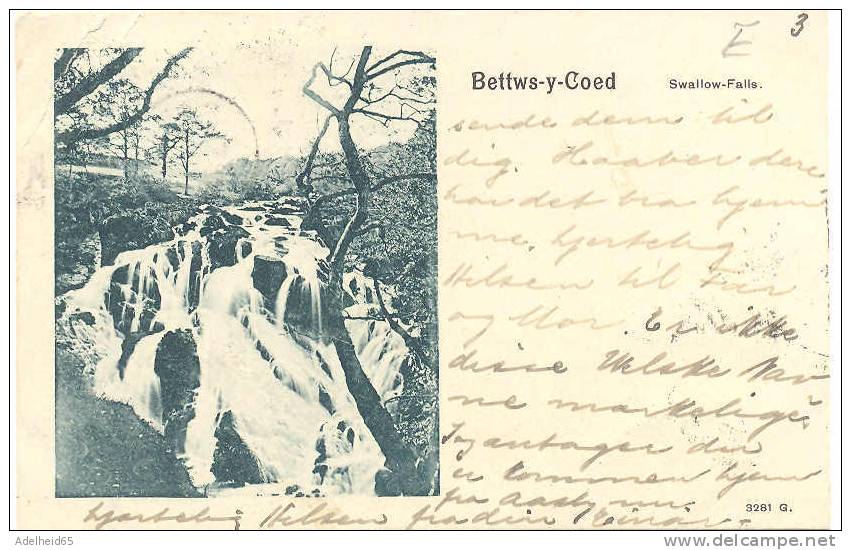 3
Bettws-y-Coed Swallow-Falls.
sende dem til
dig. Haaber dere
har det bra hjem
me, hjertelig
Hilsen til Far
og Mor. Er ikke
disse Welske Nav
ne markelige?
Jeg antager du
er kommen hjem
fra Aasby nu
hjertelig Hilsen fra din Einar
3281 G.
Adelheid65
delcampe.net